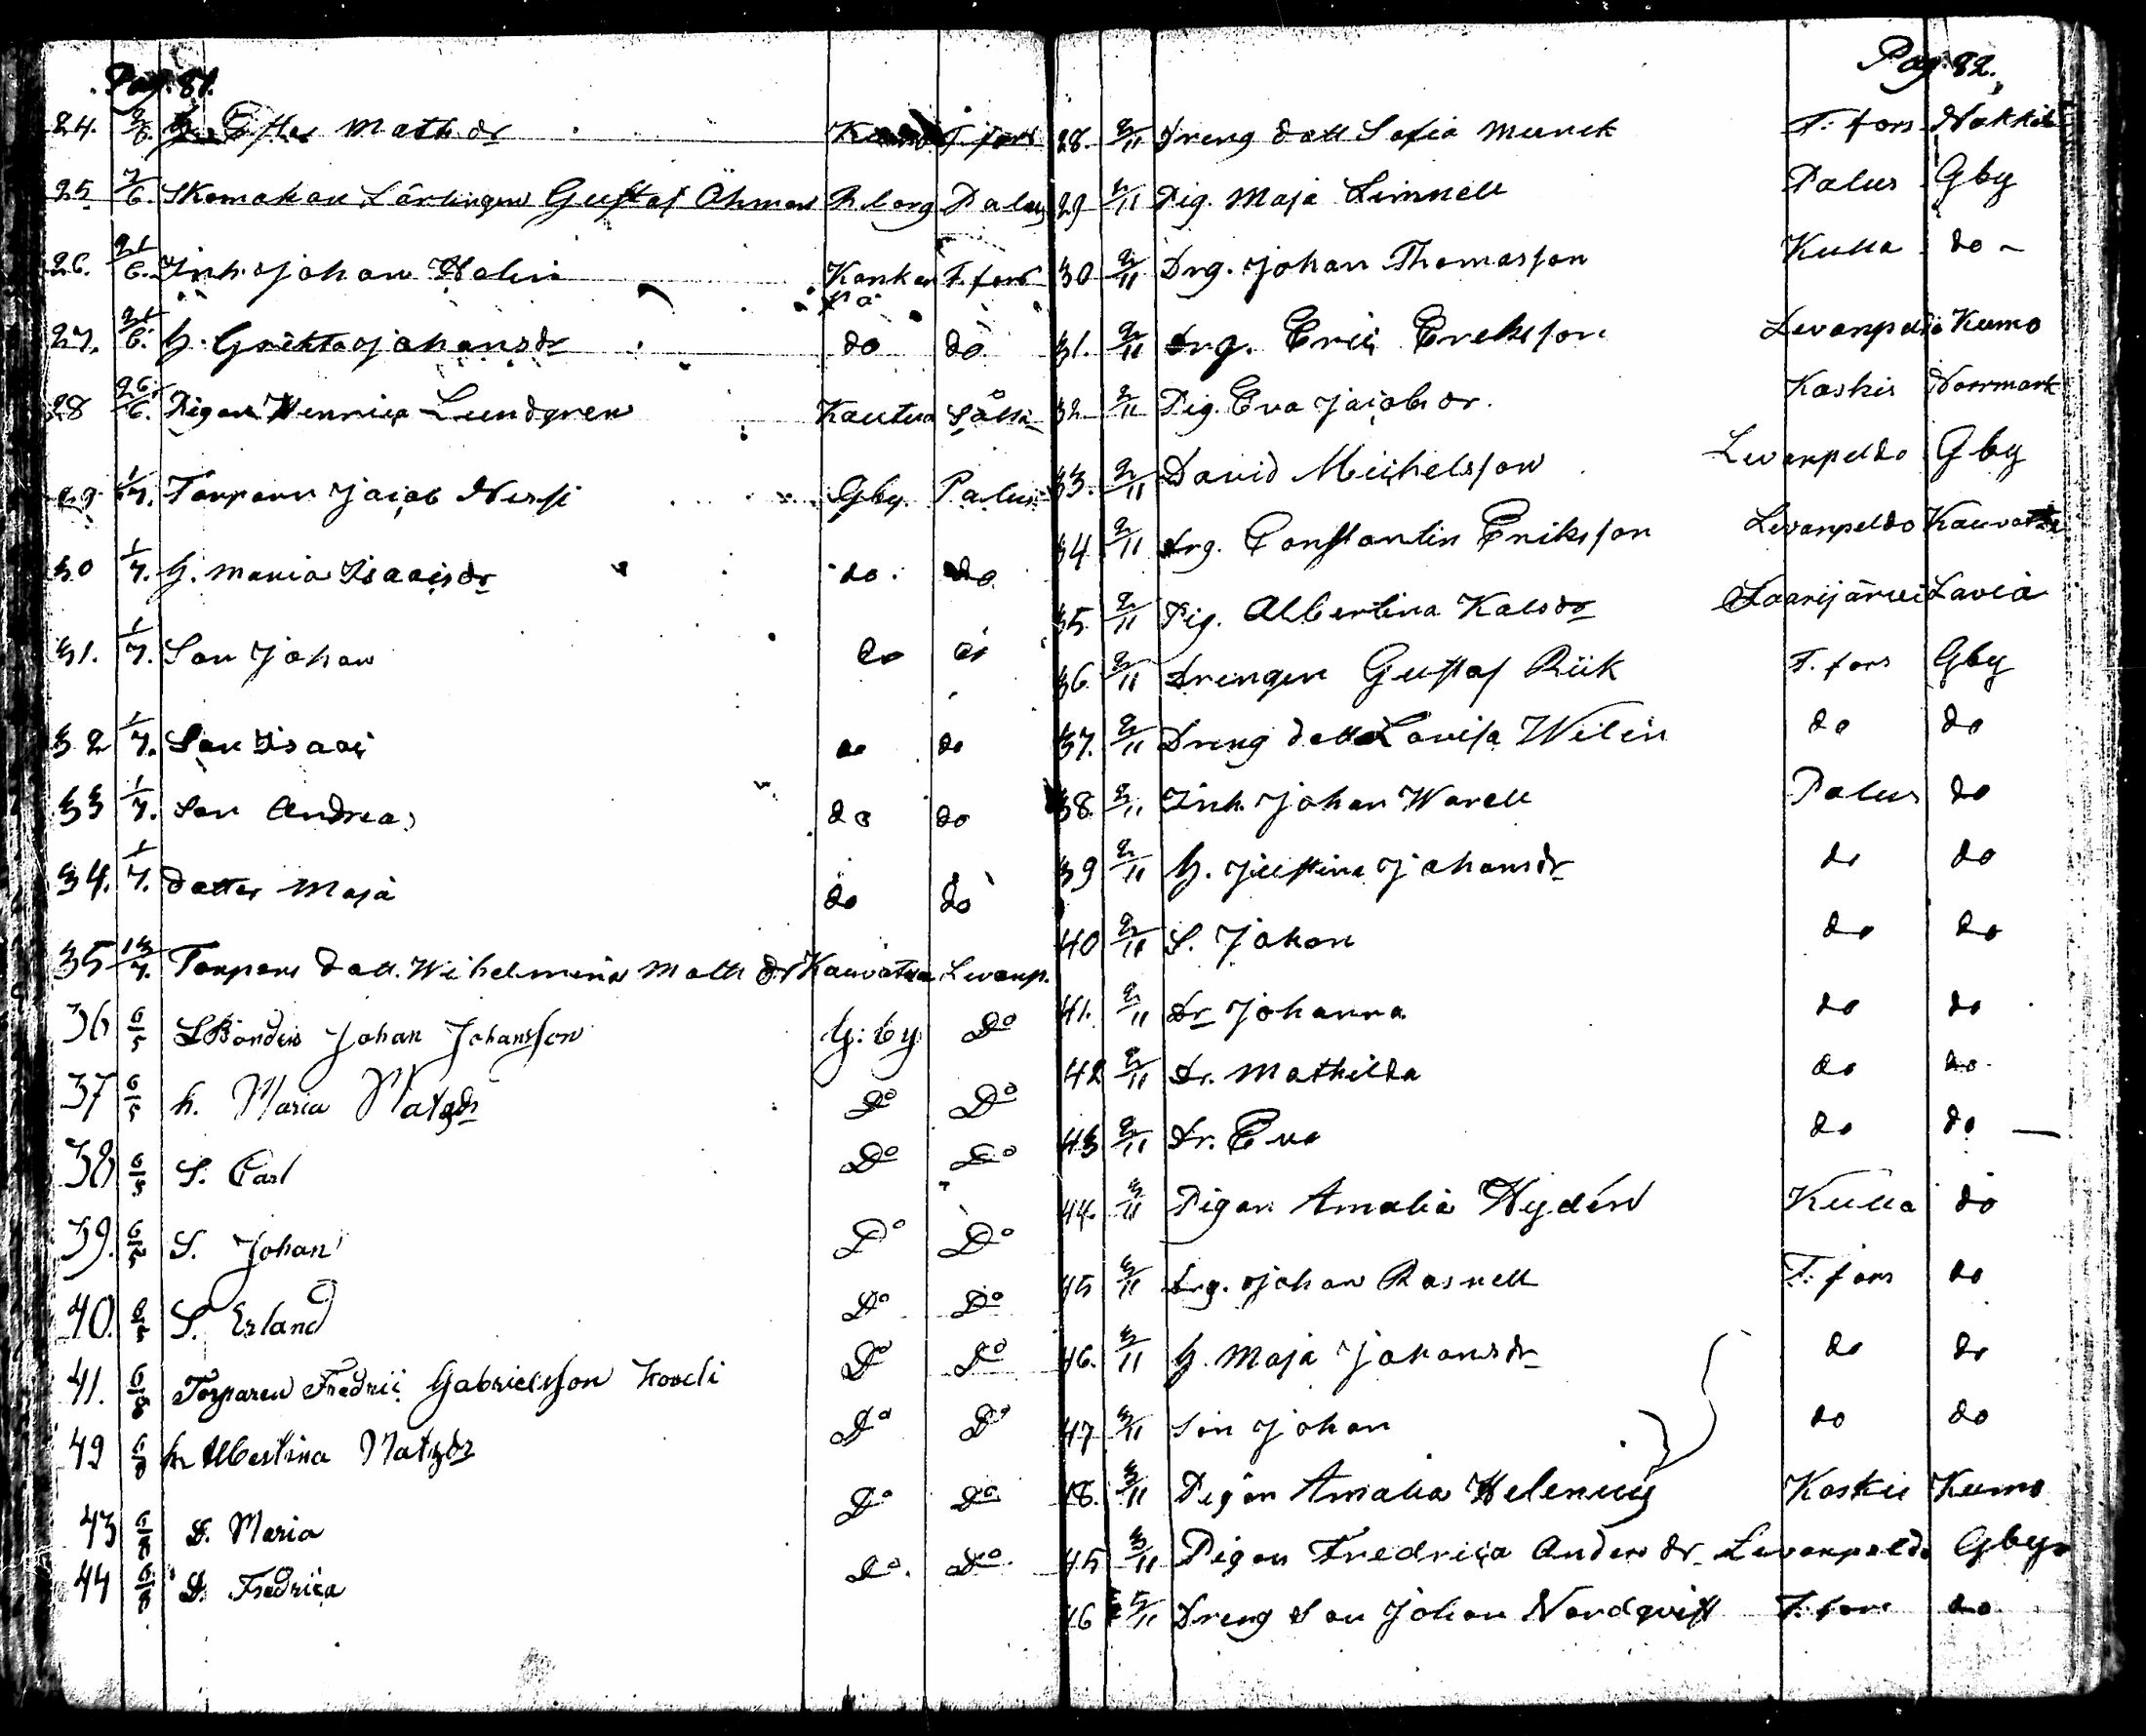 Pag. 81.
24. 2/6. H. Ester Matts dr T.fors
25 7/6. Skomakare Lärlingen Gustaf Öhman B.borg Palus
26. 21/6. Inh. Johan Holin Kankan T.fors
pä
27. 21/6. H. Gretha Johansdr do do
28 26/6. Pigan Henrica Lundgren Kautua Sälli
29 1/7. Torparn Jacob Nessi Gby. Palus
30 1/7. H. Maria Isaacsdr do. do
31. 1/7. Son Johan do do
32 1/7. Son Isaac do do
33 1/7. Son Andreas do do
34. 1/7. Dotter Maja do do
35 13/7. Torpare Dott. Wilhelmina Matts dr Kauvatsa Levanp.
36 6/5 LBonden Johan Johansson G: by Do
37 6/5 h. Maria Matsdr Do Do
38 6/5 S. Carl Do Do
39. 6/5 S. Johan Do Do
40. S. Erland Do Do
41. Torparen Fredric Gabrielsson Koveli Do Do
42 h. Albertina Matsdr Do Do
43 D. Maria Do Do
44 D. Fredrica Do. Do.
Pag. 82.
28. 2/11 Dreng dott Sofia Munck T: fors Nakkila
29 2/11 Pig. Maja Limnell Palus Gby
30 2/11 Drg. Johan Thomasson Kulla do
31. 2/11 Drg. Eric Ericksson Levanpelto Kumo
32 2/11 Pig. Eva Jacobs dr. Koskis Norrmark
33. 2/11 David Michelsson Levanpeldo Gby
34 2/11 Drg. Constantin Eriksson Levanpeldo Kauvatsa
35 2/11 Pig. Albertina Kalsdr Saarijärvi Lavia
36 2/11 Drengen Gustaf Riik T. fors Gby
37. 2/11 Dreng dott Lovisa Wilén do do
38. 2/11 Inh. Johan Warell Palus do
39 2/11 H. Justina Johansdr do do
40 2/11 S. Johan do do
41. 2/11 Dr Johanna do do
42 2/11 Dr. Mathilda do do
43 2/11 Dr. Eva do do
44. 3/11 Pigan Amalia Hydén Kulla do
45 3/11 Drg. Johan Rasnell T. fors do
46. 3/11 H. Maja Johansdr do do
47 3/11 Son Johan do do
48. 3/11 Pigan Amalia Helenius Koskis Kumo
45 3/11 Pigan Fredrica Anders dr Levanpeldo Gby
46 5/11 Dreng Son Johan Nordqvist T. fors do